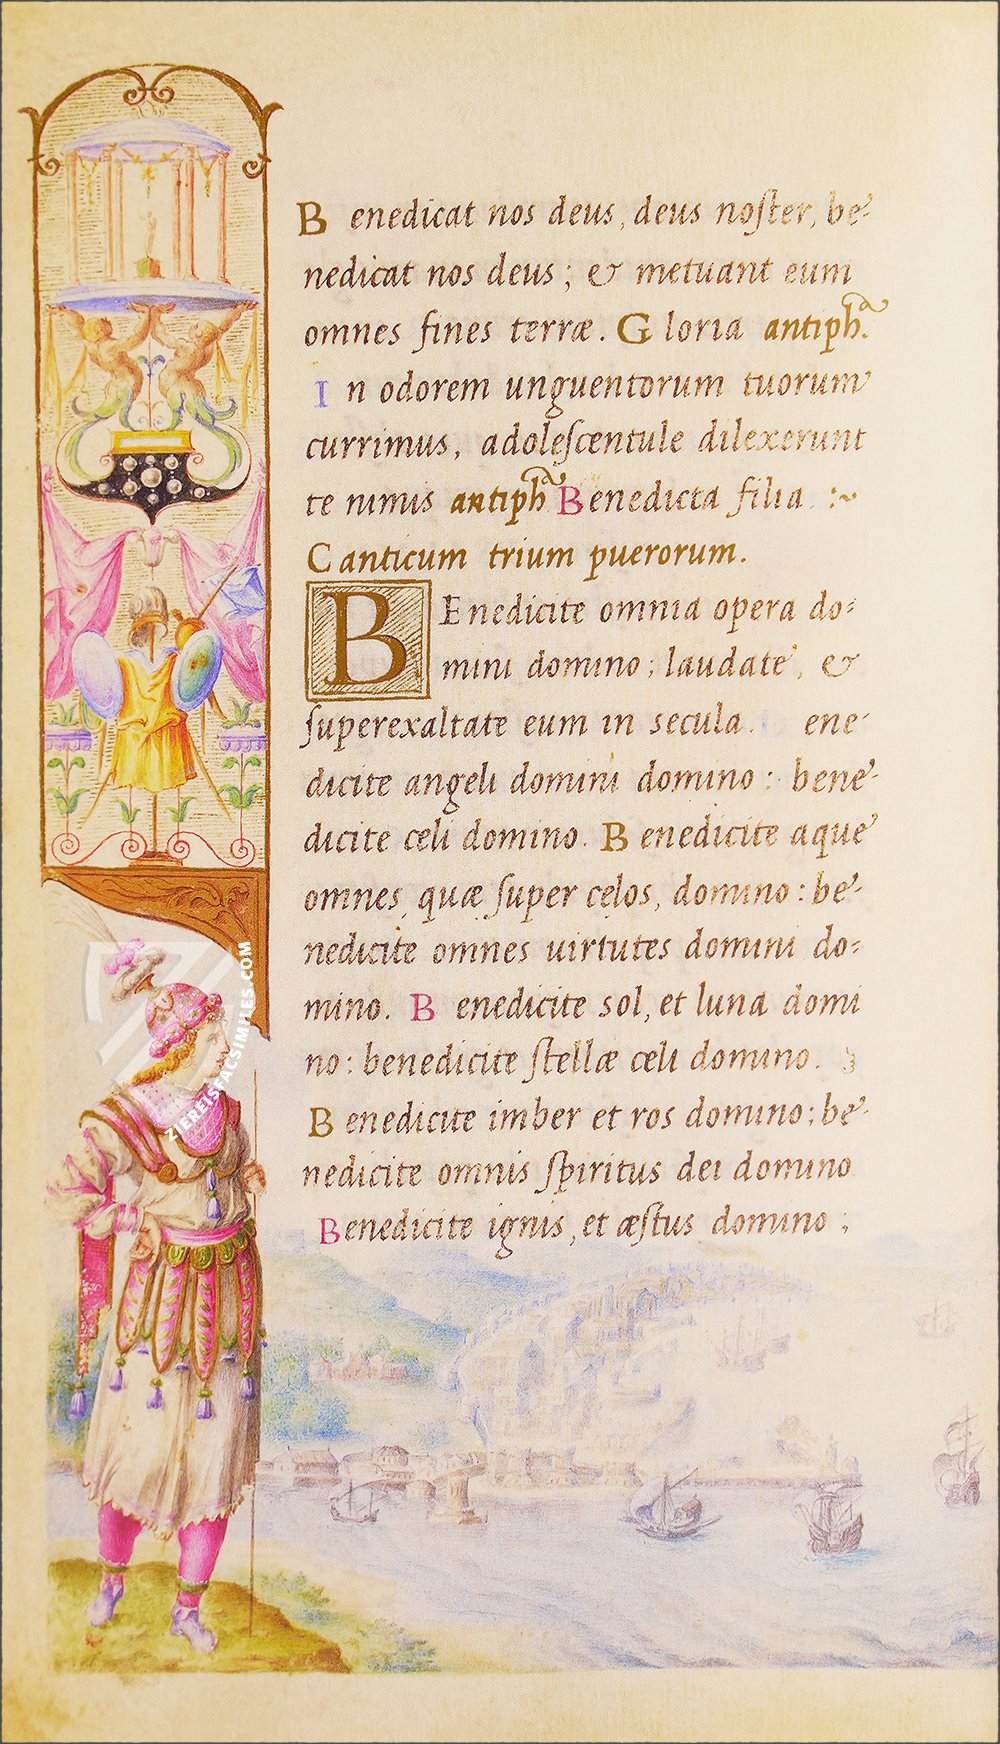 Benedicat nos deus, deus noſter, be-
nedicat nos deus; & metuant eum
omnes fines terræ. Gloria antiph.ª
In odorem unguentorum tuorum
currimus, adoleſcentule dilexerunt
te nimis antiphª Benedicta filia :~
Canticum trium puerorum.
BEnedicite omnia opera do-
mini domino; laudate, &
ſuperexaltate eum in secula. ene-
dicite angeli domini domino: bene-
dicite celi domino. Benedicite aque
omnes, quæ ſuper celos, domino: be-
nedicite omnes uirtutes domini do-
mino. Benedicite sol, et luna domi
no: benedicite ſtellæ celi domino.
Benedicite imber et ros domino: be-
nedicite omnis ſpiritus dei domino
Benedicite ignis, et æſtus domino;
ZIEREISFACSIMILES.COM